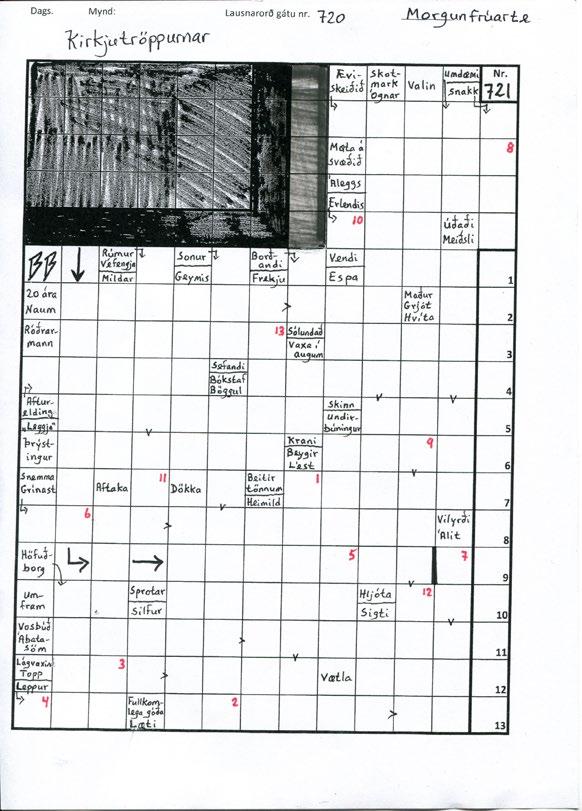 Dags. Mynd: Lausnarorð gátu nr. 720 Morgunfrúarte
Kirkjutröppurnar
Ævi-
skeiðið
Skot-
mark
Ógnar
Valin
Umdæmi
Snakk
Nr.
721
Mæta á
svæðið
8
Áleggs
Erlendis
10
Úðaði
Meiðsli
BB
Rúmur
Véfengja
Mildar
Sonur
Geymis
Borð-
andi
Frekju
Vendi
Espa
1
20 ára
Naum
Maður
Grjót
Hvíta
2
Róðrar-
mann
13
Sólundað
Vaxa í
augum
3
Sefandi
Bókstaf
Böggul
4
Aftur-
elding
"Leggja"
Skinn
Undir-
búningur
5
Þrýst-
ingur
Krani
Beygir
Lest
9
6
Snemma
Grínast
Aftaka
11
Dökka
Beitir
tönnum
Heimild
1
7
6
Vilyrði
Álit
8
Höfuð-
borg
5
7
9
Um-
fram
Sprotar
Silfur
Hljóta
Sigti
12
10
Vosbúð
Ábata-
söm
11
Lágvaxin
Topp
Leppur
3
Vætla
12
4
Fullkom-
lega góða
Læti
2
13